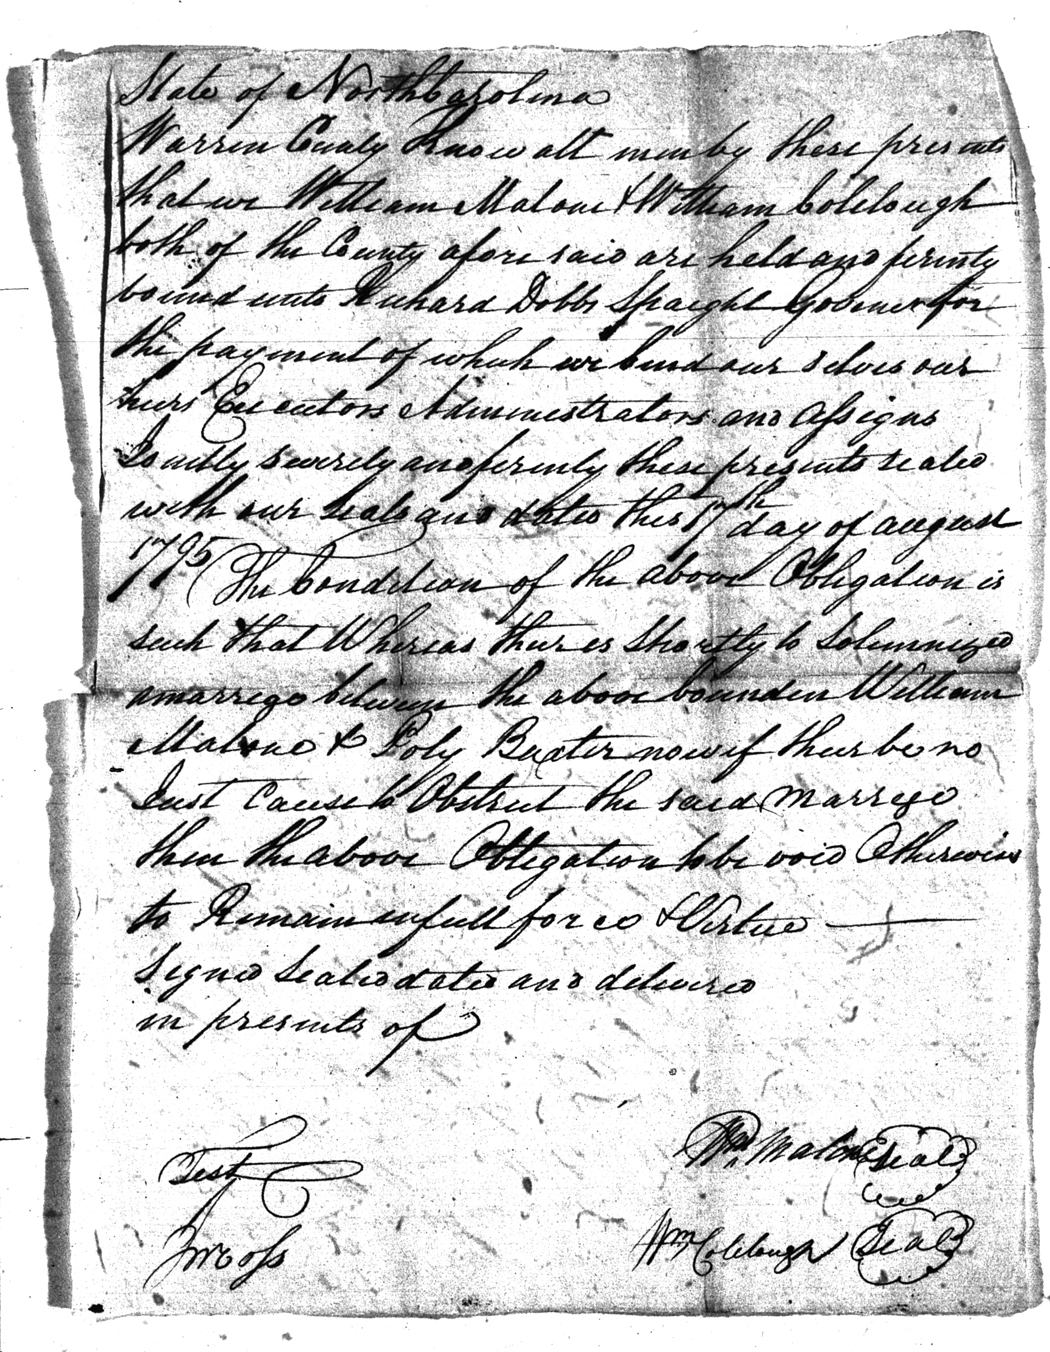 State of North Carolina
Warren County Know all men by these presents
that we William Malone & William Colclough
both of the County afore said are held and firmly
bound unto Richard Dobbs Spaight Governer for
the payment of which we bind our selves our
heirs Executors Administrators and Assigns
Jointly severely and firmly these presents sealed
with our seals and dated this 17th day of august
1795 The Condition of the above Obligation is
such that Whereas ther is shortly to Solemnized
a marrege between the above bounden William
Malone & Poly Baxter now if ther be no
Just Cause to Obstruct the said Marrege
then the above Obligation to be void Otherwise
to Remain in full force & Virtue
Signed Sealed dated and delivered
in presents of
Test Wm Malone Seal
Wm Colclough Seal